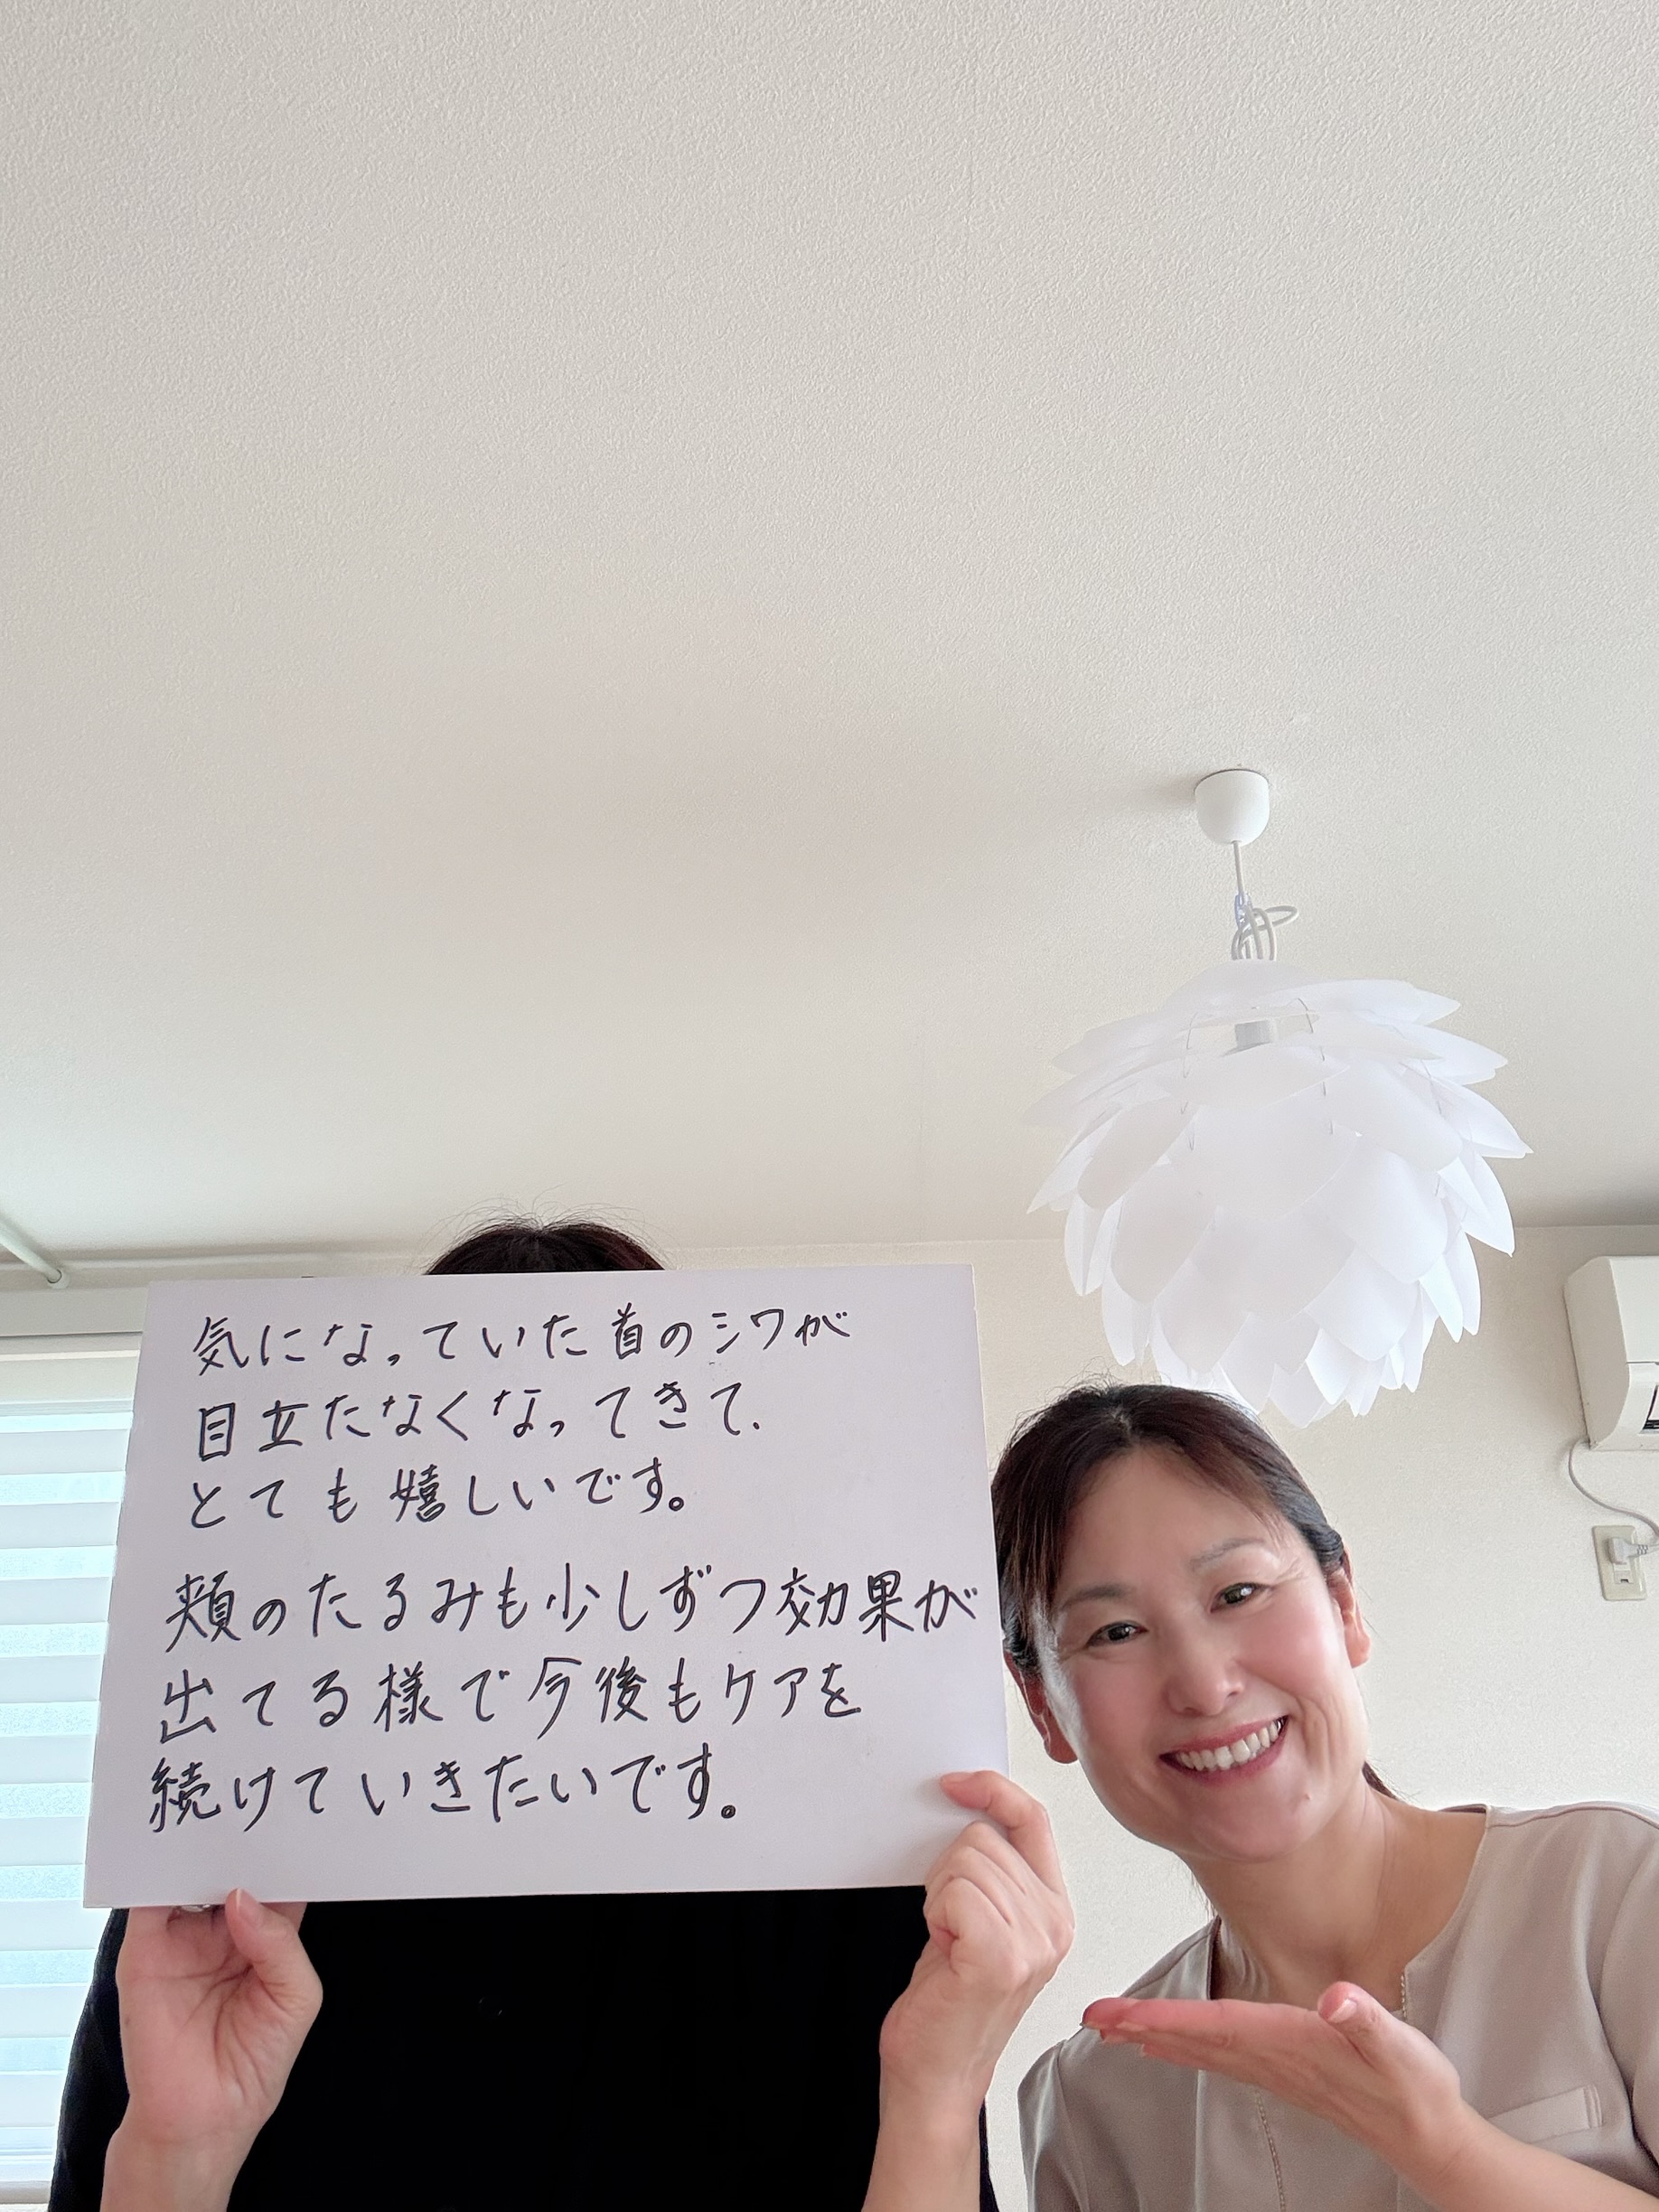 気になっていた首のシワが
目立たなくなってきて、
とても嬉しいです。
頬のたるみも少しずつ効果が
出てる様で今後もケアを
続けていきたいです。